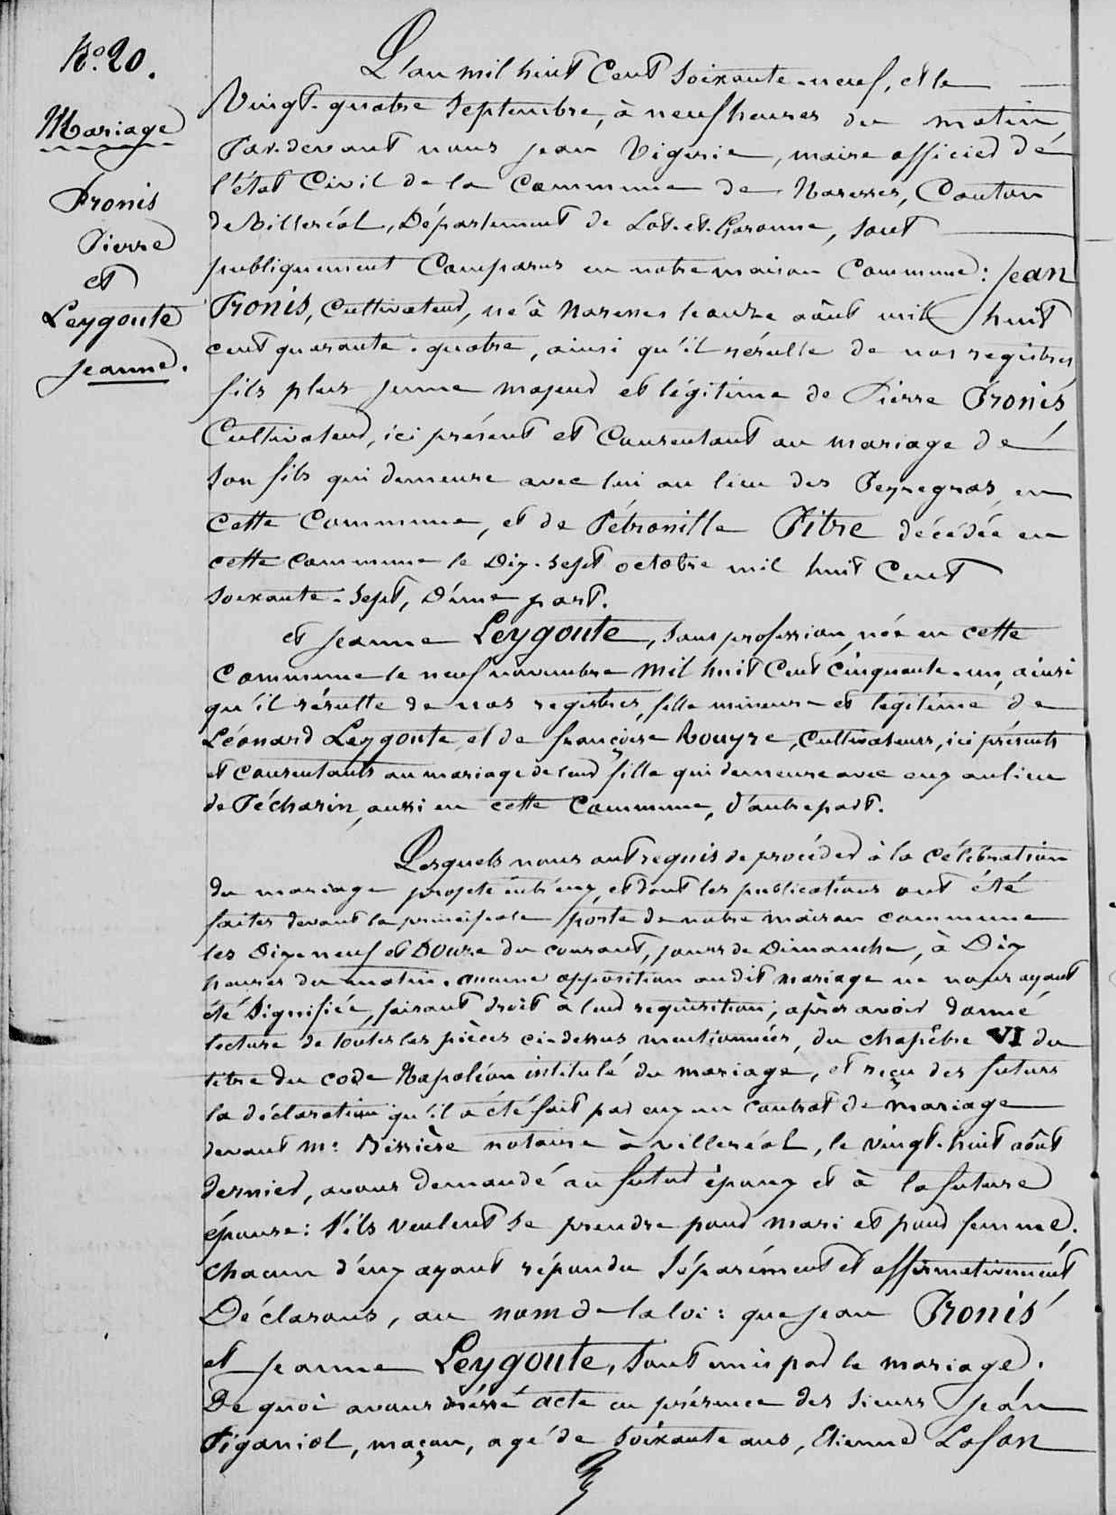 No. 20.
Mariage
Pronis
Pierre
et
Leygoute
Jeanne.
L'an mil huit Cent Soixante-neuf, et le
Vingt-quatre Septembre, à neuf heures du matin,
Par-devant nous Jean Vigerie, maire officier de
l'état Civil de la Commune de Naresses, Canton
de Villeréal, Département de Lot-et-Garonne, sont
publiquement Comparus en notre maison Commune: Jean
Pronis, Cultivateur, né à Naresses le onze août mil huit
cent quarante-quatre, ainsi qu'il résulte de nos registres,
fils plus jeune majeur et légitime de Pierre Pronis,
Cultivateur, ici présent et Consentant au mariage de
son fils qui demeure avec lui au lieu des Peyregras, en
cette Commune, et de Pétronille Pitre décédée en
cette commune le Dix-sept octobre mil huit Cent
soixante-sept, D'une part.
et Jeanne Leygoute, sans profession, née en cette
Commune le neuf novembre mil huit Cent Cinquante-un, ainsi
qu'il résulte de nos registres, fille mineure et légitime de
Léonard Leygoute, et de françoise Rouyre, Cultivateurs, ici présents
et consentants au mariage de leur fille qui demeure avec eux au lieu
de Pécharin, aussi en cette Commune, d'autre part.
Lesquels nous ont requis de procéder à la célébration
du mariage projeté entr'eux, et dont les publications ont été
faites devant la principale porte de notre maison commune
les Dix neuf et Douze du courant, jours de Dimanche, à Dix
heures du matin. aucune opposition audit mariage ne nous ayant
été Signifiée, faisant droit à leur requisition, après avoir donné
lecture de toutes les pièces ci-dessus mentionnées, du chapitre VI du
titre du code Napoléon intitulé du mariage, et reçu des futurs
la déclaration qu'il a été fait par eux un contrat de mariage
devant Me: Bissière notaire à villeréal, le vingt-huit août
dernier, avons demandé au futur époux et à la future
épouse: s'ils veulent se prendre pour mari et pour femme.
chacun d'eux ayant répondu Séparément et affirmativement,
Déclarons, au nom de la loi: que Jean Pronis
et Jeanne Leygoute, sont unis par le mariage.
De quoi avons dréssé acte en présence des sieurs Jean
Piganiol, maçon, agé de soixante ans, Etienne Lafon